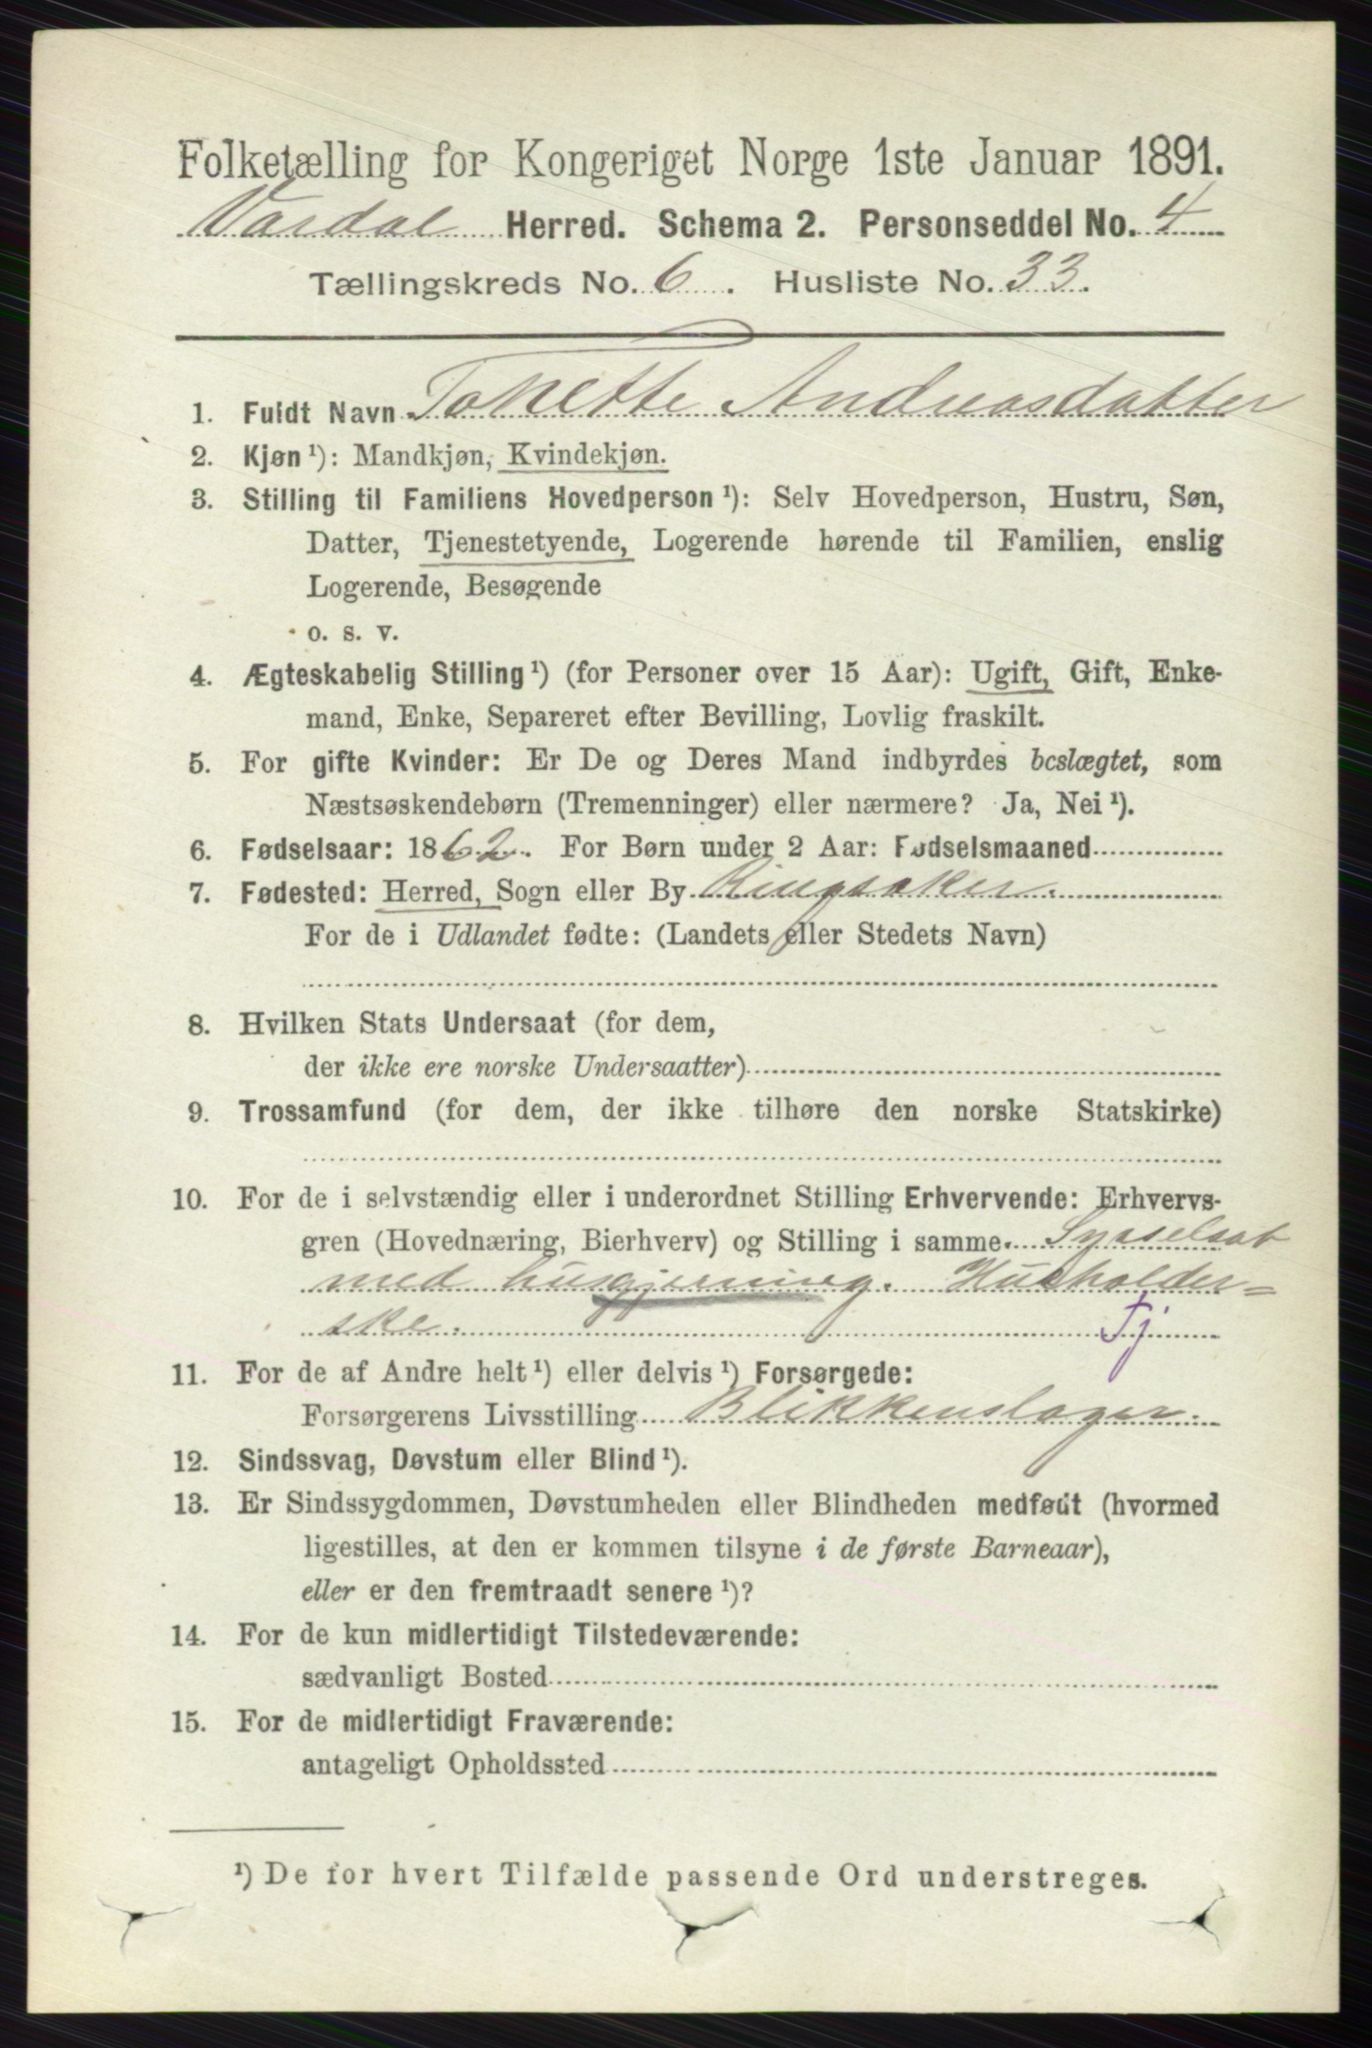 Folketælling for Kongeriget Norge 1ste Januar 1891.
Vardal Herred. Schema 2. Personseddel No. 4
Tællingskreds No. 6. Husliste No. 33.
1. Fuldt Navn Tonette Andreasdatter
2. Kjøn ¹): Mandkjøn, Kvindekjøn.
3. Stilling til Familiens Hovedperson ¹): Selv Hovedperson, Hustru, Søn,
Datter, Tjenestetyende, Logerende hørende til Familien, enslig
Logerende, Besøgende
o. s. v.
4. Ægteskabelig Stilling ¹) (for Personer over 15 Aar): Ugift, Gift, Enke-
mand, Enke, Separeret efter Bevilling, Lovlig fraskilt.
5. For gifte Kvinder: Er De og Deres Mand indbyrdes beslægtet, som
Næstsøskendebørn (Tremenninger) eller nærmere? Ja, Nei ¹).
6. Fødselsaar: 1862. For Børn under 2 Aar: Fødselsmaaned
7. Fødested: Herred, Sogn eller By Ringsaker.
For de i Udlandet fødte: (Landets eller Stedets Navn)
8. Hvilken Stats Undersaat (for dem,
der ikke ere norske Undersaatter)
9. Trossamfund (for dem, der ikke tilhøre den norske Statskirke)
10. For de i selvstændig eller i underordnet Stilling Erhvervende: Erhvervs-
gren (Hovednæring, Bierhverv) og Stilling i samme. Sysselsat
med husgjerning. Husholder=
ske. Tj
11. For de af Andre helt ¹) eller delvis ¹) Forsørgede:
Forsørgerens Livsstilling Blikkenslager.
12. Sindssvag, Døvstum eller Blind ¹).
13. Er Sindssygdommen, Døvstumheden eller Blindheden medfødt (hvormed
ligestilles, at den er kommen tilsyne i de første Barneaar),
eller er den fremtraadt senere ¹)?
14. For de kun midlertidigt Tilstedeværende:
sædvanligt Bosted
15. For de midlertidigt Fraværende:
antageligt Opholdssted
¹) De for hvert Tilfælde passende Ord understreges.